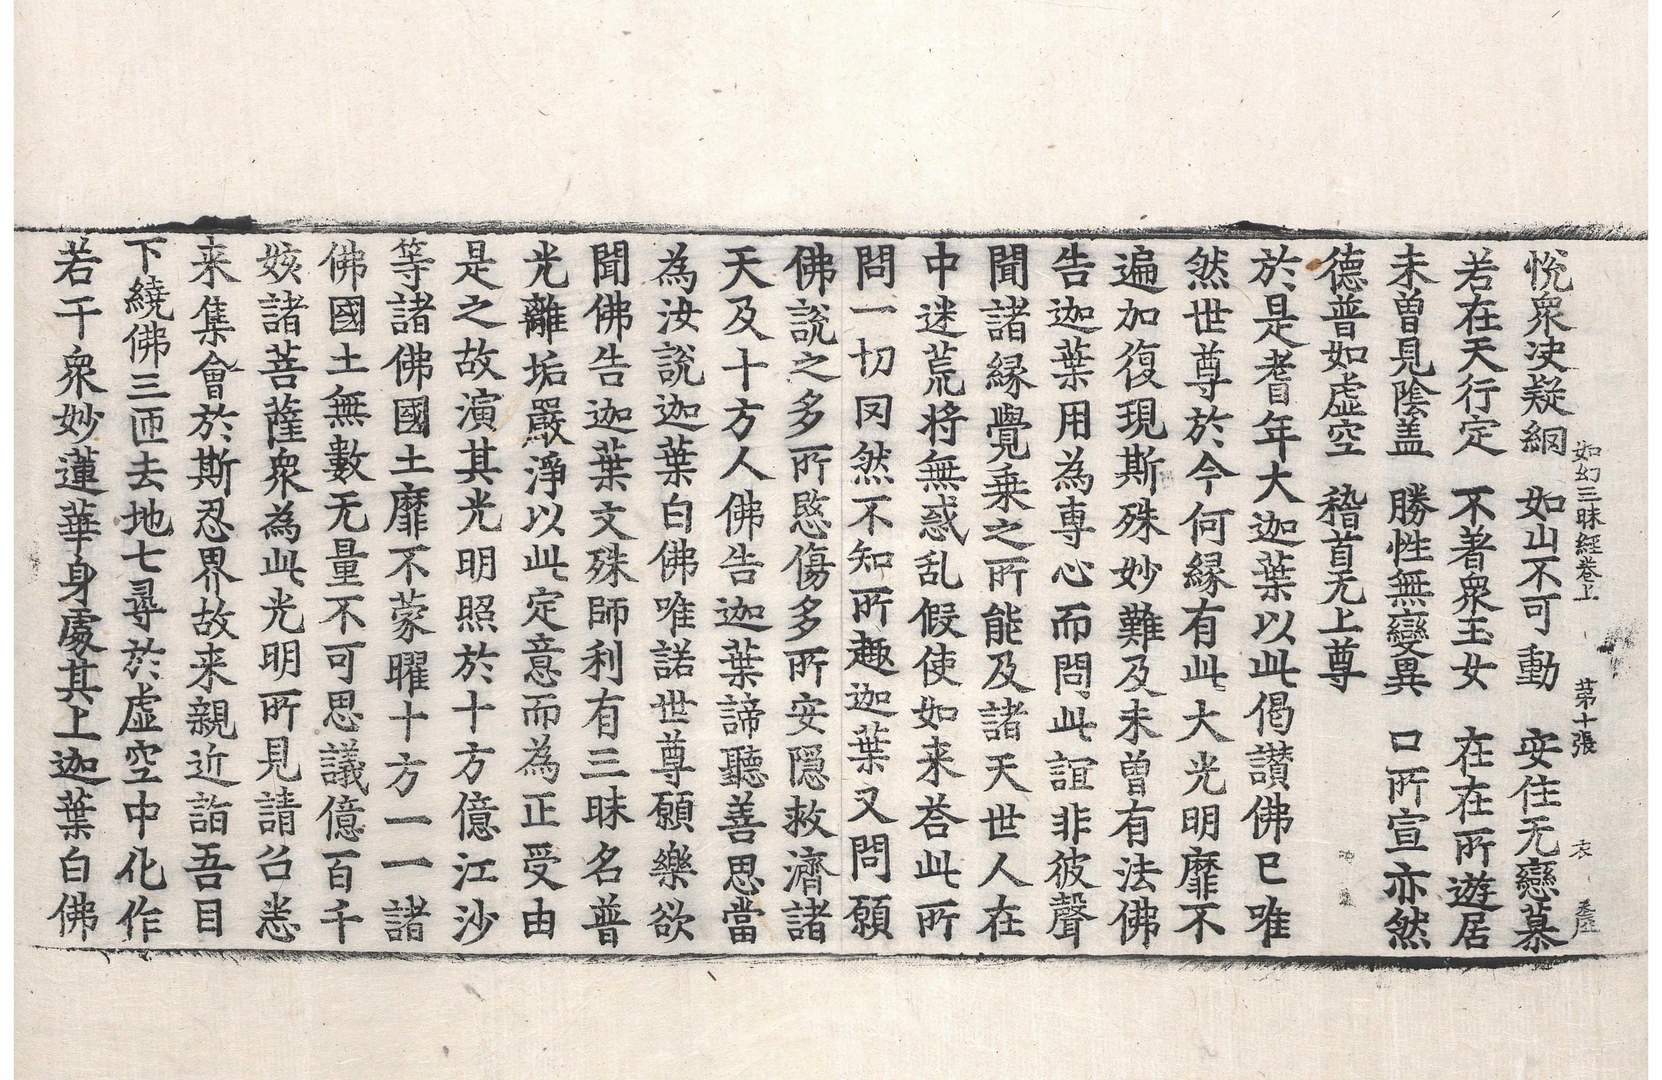 如幻三昧經卷上 第十張
悅衆决疑網 如山不可動 安住无戀慕
若在天行定 不著衆玉女 在在所遊居
未曾見陰盖 勝性無變異 口所宣亦然
德普如虛空 稽首无上尊
於是耆年大迦葉以此偈讃佛已唯
然世尊於今何縁有此大光明靡不
遍加復現斯殊妙難及未曾有法佛
告迦葉用為専心而問此誼非彼聲
聞諸縁覺乗之所能及諸天世人在
中迷荒將無惑乱假使如来荅此所
問一切罔然不知所趣迦葉又問願
佛說之多所愍傷多所安隱救濟諸
天及十方人佛告迦葉諦聽善思當
為汝說迦葉白佛唯諾世尊願樂欲
聞佛告迦葉文殊師利有三昧名普
光離垢嚴淨以此定意而為正受由
是之故演其光明照於十方億江沙
等諸佛國土靡不蒙曜十方一一諸
佛國土無數无量不可思議億百千
姟諸菩薩衆為此光明所見請召悉
来集會於斯忍界故来親近詣吾目
下繞佛三匝去地七尋於虛空中化作
若干衆妙蓮華身處其上迦葉白佛